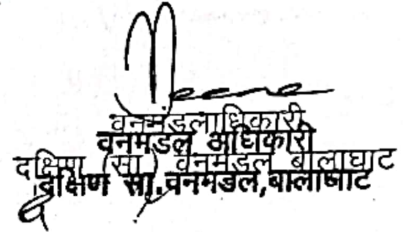 वनमंडलाधिकारी
वनमंडल अधिकारी
दक्षिण (सा) वनमंडल बालाघाट
दक्षिण सा.वनमंडल,बालाघाट